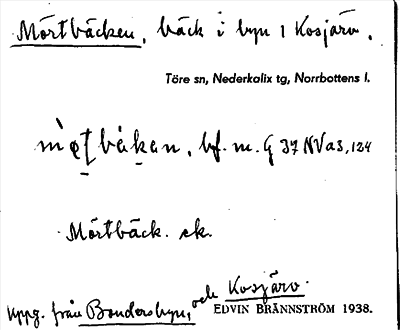 Mörtbäcken, bäck i byn 1 Kosjärv.
Töre sn, Nederkalix tg, Norrbottens l.
bf. m. G 37 NV a3, 124
Mörtbäck. ek.
Uppg. från Bondersbyn, och Kosjärv.
EDVIN BRÄNNSTRÖM 1938.